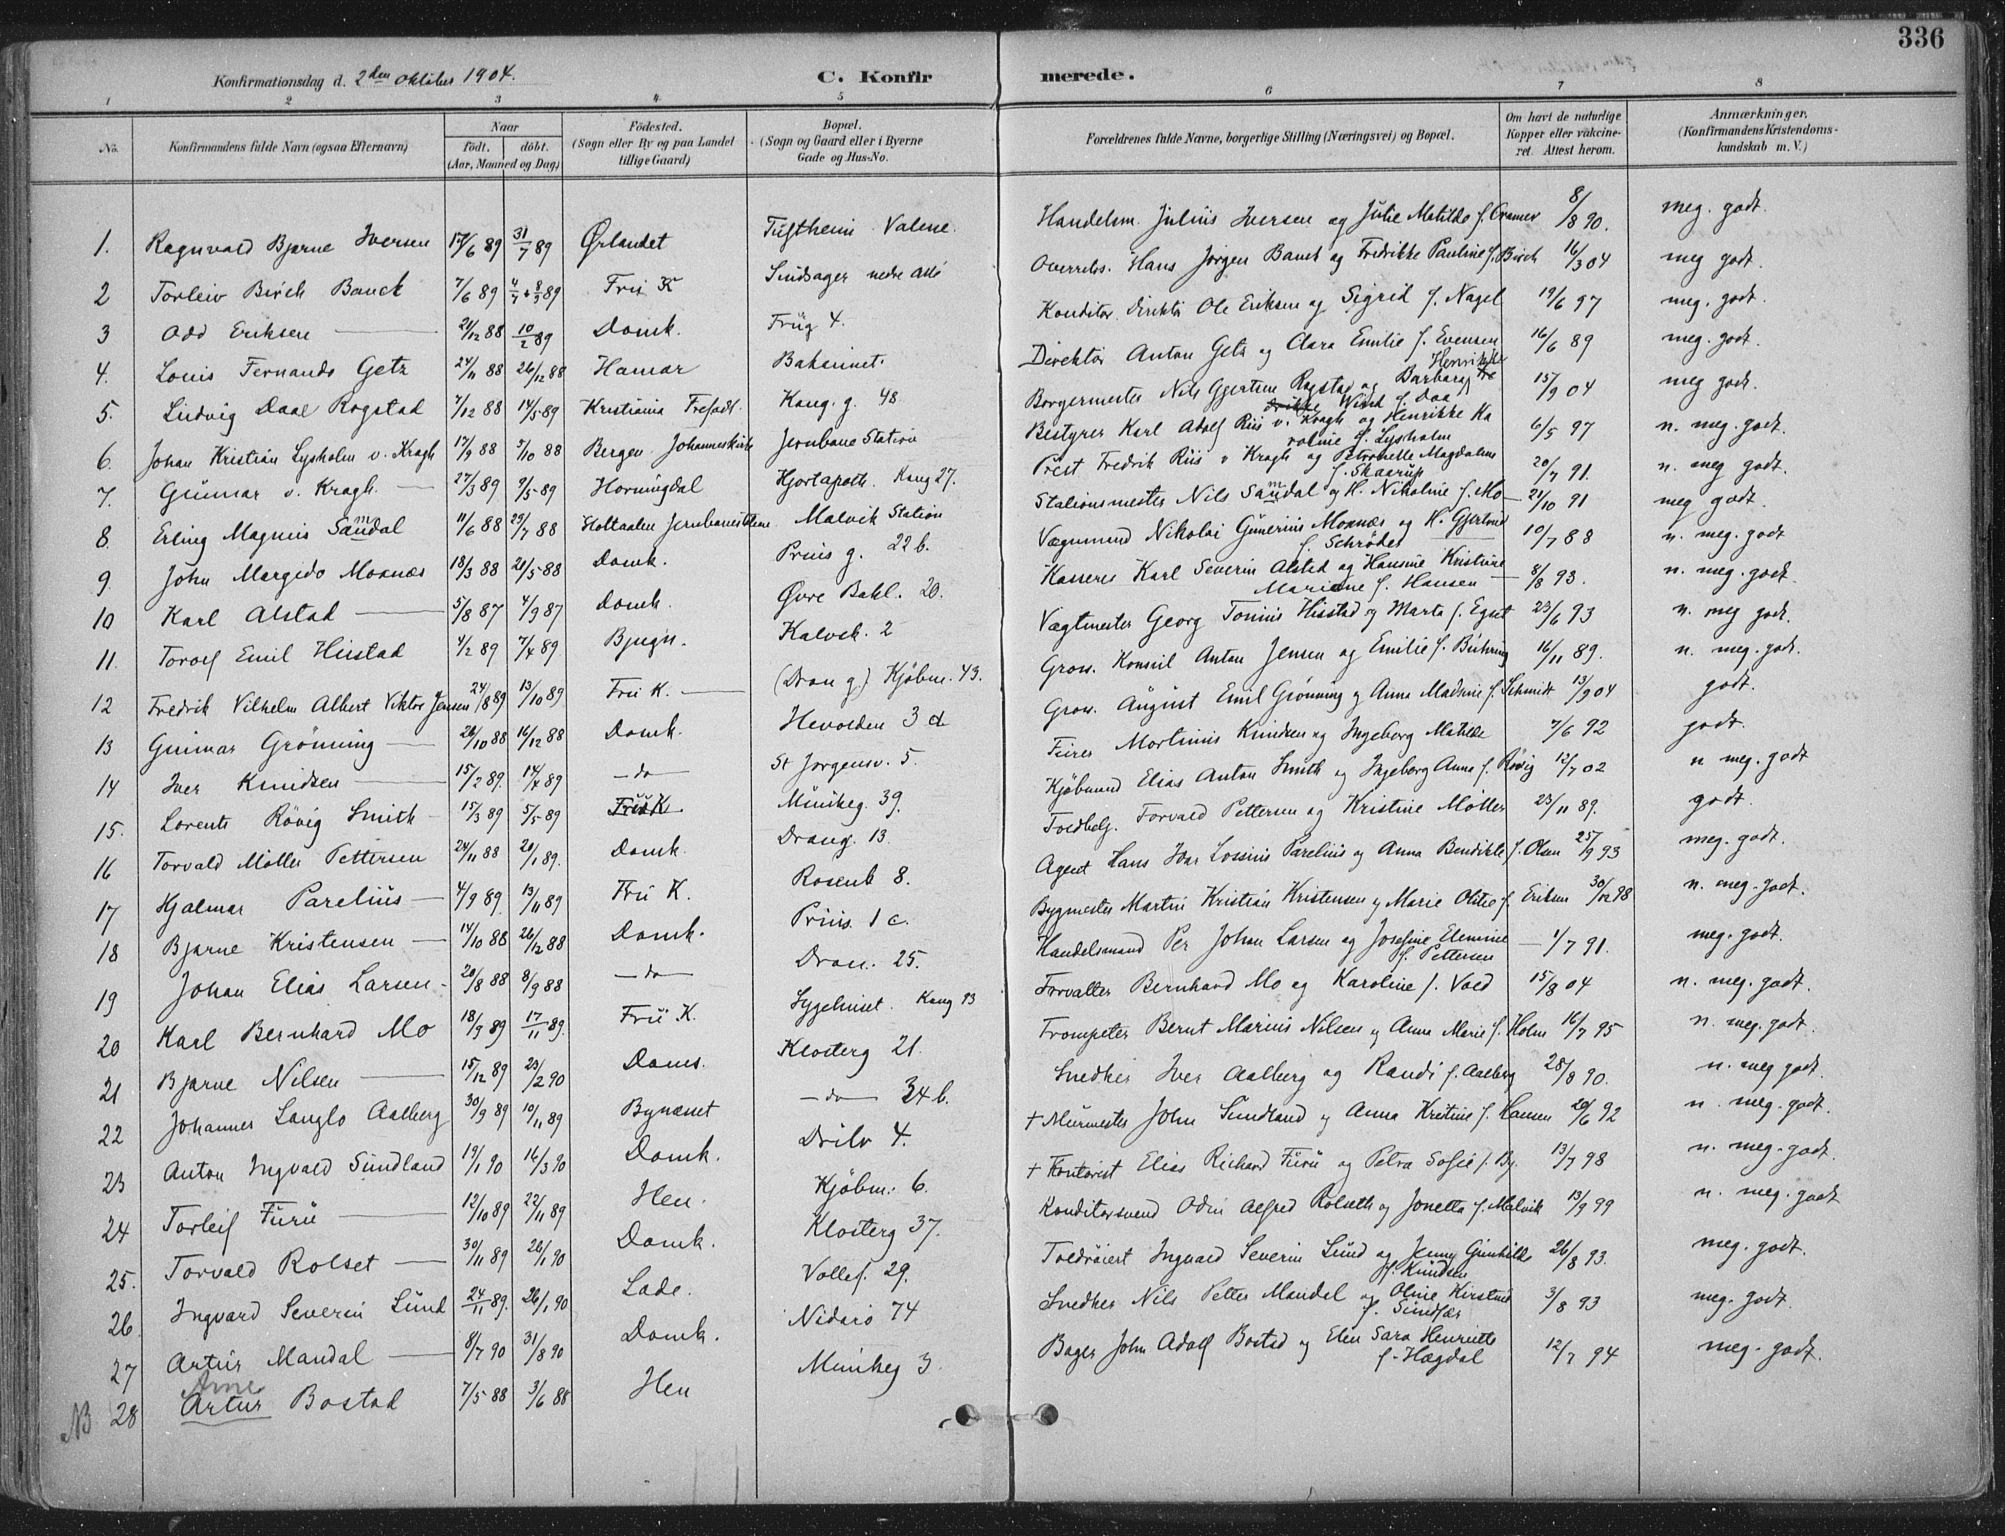 336
Konfirmationsdag d. 2den Oktober 1904.
C. Konfirmerede.
1 2 3 4 5 6 7 8
No.
Konfirmandens fulde Navn (ogsaa Efternavn)
Naar
født. døbt.
(Aar, Maaned og Dag)
Fødested.
(Sogn eller By og paa Landet
tillige Gaard)
Bopæl.
(Sogn og Gaard eller i Byerne
Gade og Hus-No.
Forældrenes fulde Navne, borgerlige Stilling (Næringsvei) og Bopæl.
Om havt de naturlige
Kopper eller vakcine-
ret. Attest herom.
Anmærkninger.
(Konfirmandens Kristendoms-
kundskab m. V.)
1. Ragnvald Bjarne Iversen 17/6 89 31/7 89 Ørlandet Valene. Handelsm. Julius Iversen og Julie Matilde f. Cramer 8/8 90. meg. godt.
2 Torleiv Birch Bauck 7/6 89 Fru K Sindsager nedre Allé Overrets. Hans Jørgen Bauck og Fredrikke Pauline f. Birch 16/3 04 meg godt.
3 Odd Eriksen 21/12 88 10/2 89 Domk. Frug 4. Konditor Direktør Ole Eriksen og Sigrid f. Nagel 19/6 97 meg. godt.
4. Louis Fernando Getz 24/11 88 26/12 88 Hamar Baksinet. Direktør Anton Getz og Clara Emilie f. Evensen 16/6 89 meg. godt.
5. Ludvig Daae Rogstad 7/12 88 14/5 89 Kristiania Trefodt. Kong. g. 48 Borgermester Nils Gjertsen Rogstad og Barbara Henrikke Wind f. Daa 15/9 04 meg godt.
6. Johan Kristian Lysholm v. Krogh 17/9 88 5/10 88 Bergen Johanneskirke Jernbane Station Bestyrer Karl Adolf Riis v. Krogh og Henrikke Karoline f. Lysholm 6/5 97 n. meg. godt.
7. Gunnar v. Krogh. 27/3 89 9/5 89 Hornindal Hjortapoth. Kong 27. Prest Fredrik Riis v Krogh og Petronelle Magdalene f. Skaarup 20/7 91. n. meg godt.
8. Erling Magnus Sandal 11/6 88 29/7 88 Holtaalen Malvik Station Stationsmester Nils Sandal og H. Nikoline f. Mo 21/10 91 meg godt.
9 John Margido Moxnæs 18/3 88 21/5 88 Domk. Prins g. 22 b. Vægmand Nikolai Gunerius Moxnæs og H. Gjertrud f. Schrøder 10/7 88 n. meg. godt
10 Karl Alstad 5/8 87 4/9 87 Domk. Øvre Bakl. 20. Kasserer Karl Severin Alstad og Hansine Kristine Mariane f. Hansen 8/8 93. n. meg. godt.
11. Torolf Emil Hustad 4/2 89 7/4 89 Bjugn. Kalvsk. 2 Vægtmester Georg Tonius Hustad og Marta f. Egset 23/6 93 n. meg godt.
12 Fredrik Vilhelm Albert Viktor Jensen 24/8 89 13/10 89 Fru K. (Dron g.) Kjøbm. 43. Gros. Konsul Anton Jensen og Emilie f. Bühring 16/11 89. n. meg. godt.
13 Gunnar Grønning 26/10 88 16/12 88 Domk. Hevolden 3 d Gros. August Emil Grønning og Anna Madsine f. Schmidt 13/9 04 godt.
14 Iver Knudsen 15/2 89. 14/4 89 — do — St Jørgensv. 5. Fører Mortinus Knudsen og Ingeborg Matilde 7/6 92 godt.
15. Lorents Røvig Smith 15/3 89 5/5 89 Fru K Munkeg. 39. Kjøbmand Elias Anton Smith og Ingeborg Anna f. Røvig 12/7 02 n meg. godt
16 Torvald Møller Pettersen 24/11 88 21/1 89. Domk. Drong. 13. Toldbetj. Torvald Pettersen og Kristine Møller 23/11 89. godt.
17 Hjalmar Parelius 4/9 89. 13/11 89 Fru K. Rosenb 8. Agent Hans Ivar Lossius Parelius og Anna Bendikte f. Olsen 25/9 93 meg. godt.
18 Bjarne Kristensen 14/10 88 26/12 88 Domk. Prins. 1 c. Bygmester Martin Kristian Kristensen og Marie Oline f. Eriksen 30/12 88 n. meg. godt.
19 Johan Elias Larsen 20/8 88 8/9 88 — do — Dron. 25. Handelsmand Per Johan Larsen og Josefine Elemine f. Pettersen 1/7 91. meg. godt.
20 Karl Bernhard Mo 18/9 89 17/11 89. Fru K. Sygehuset. Kong 93 Forvalter Bernhard Mo og Karoline f. Vold 15/8 04 n. meg. godt.
21 Bjarne Nilsen 15/12 89 23/2 90 Doms. Klosterg 21. Trompeter Bernt Marius Nilsen og Anna Marie f. Holm 16/7 95 n. meg. godt.
22 Johannes Langlo Aalberg 30/9 89 10/11 89 Bynæset — do — 34 b. Snedker Iver Aalberg og Randi f. Aalberg 28/8 90. n. meg godt.
23 Anton Ingvald Sundland 19/1 90 16/3 90 Domk. Driiv 4. + Murmester John Sundland og Anna Kristine f. Hansen 20/6 92 n meg. godt.
24 Torleif Furu 12/10 89 22/11 89 Hen. Kjøbm. 6. + Kontorist Elias Richard Furu og Petra Sofie f. By. 13/7 98 n. meg. godt.
25. Torvald Rolset 30/11 89 26/1 90 Domk. Klosterg 37. Konditorsvend Odin Alfred Rolseth og Jonetta f. Malvik 13/9 99 n. meg. godt
26. Ingvard Severin Lund 24/11 89. 26/1 90 Lade. Vollef. 29. Toldrorert Ingvard Severin Lund og Jenny Gunhilde f. Knudsen 26/8 93. meg. godt.
27 Artur Mandal 8/7 90 31/8 90 Domk. Nidarø 74 Snedker Nils Petter Mandal og Oline Kirstine f. Sundfær 3/8 93 meg. godt.
NB 28 Arne Artur Bostad 7/5 88 3/6 88 Hen Munkeg 3. Bager John Adolf Bostad og Elen Sara Henriette f. Hægdal 12/7 94 meg. godt.